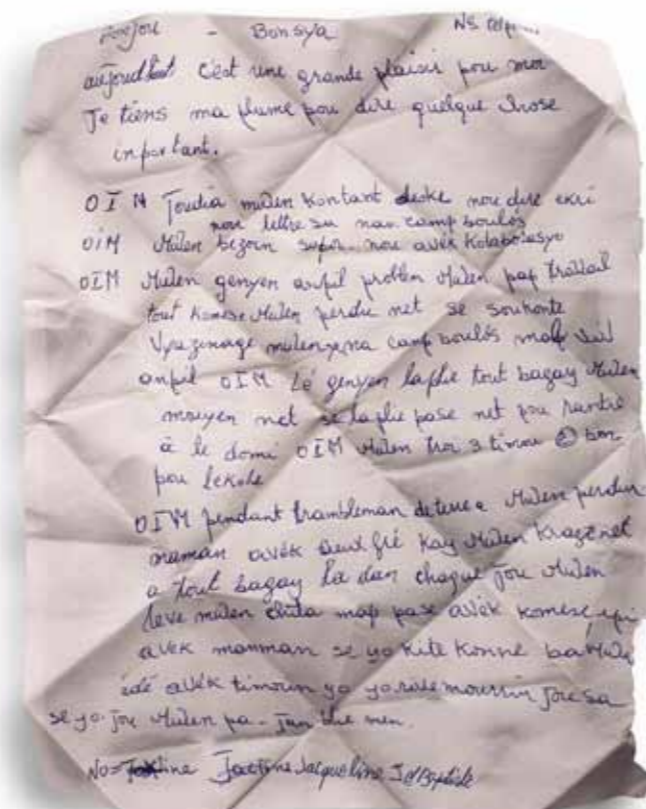 Bonsya
aujoudhui c'est une grande plaisir pou moi
Je tiens ma plume pou dire quelque chose
inportant.
OIM Joudia mwen kontant deske nou dire ekri
nou lettre su nan camp boulos
OIM Mwen bezoin sipo nou avèk kolaborasyo
OIM Mwen genyen anpil problèm Mwen pap travail
tout komese Mwen perdu net se souhonte
mwen na camp boulos map viv
anpil OIM Lè genyen laplie tout bagay Mwen
mouyen net se laplie pase net pou rantre
a le domi OIM Mwen 3 timou bon
pou lekole
OIM pendant trambleman de tere a Mwen perdu
maman avèk deux frè kay Mwen kraze net
a tout bagay la dan chaque jou Mwen
leve mwen chita map pase avèk komese epi
avèk manman se yo kite konne ba Mwen
èdé avèk timoun yo jou sa
se yo jou Mwen pa
No= Jacqueline J Baptiste